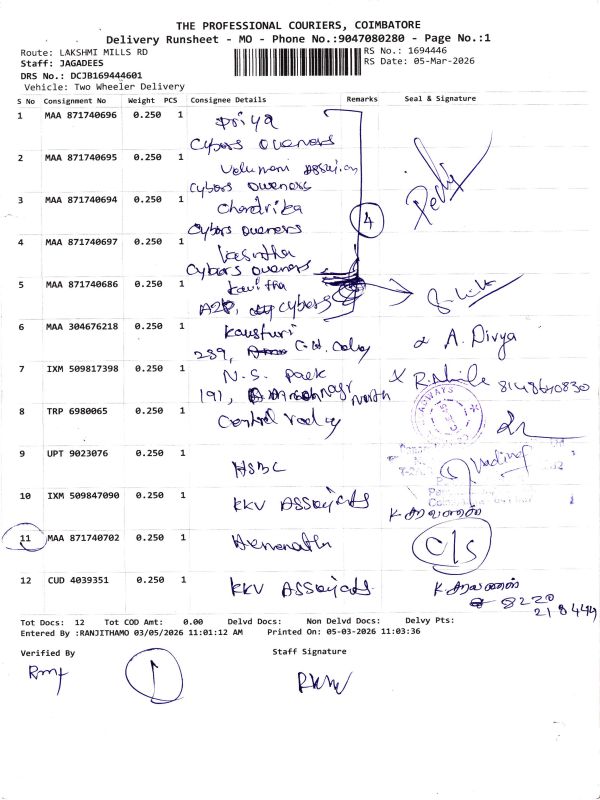 THE PROFESSIONAL COURIERS, COIMBATORE
Delivery Runsheet - MO - Phone No.:9047080280 - Page No.:1
Route: LAKSHMI MILLS RD
RS No.: 1694446
Staff: JAGADEES
RS Date: 05-Mar-2026
DRS No.: DCJB169444601
Vehicle: Two Wheeler Delivery
S No Consignment No Weight PCS Consignee Details Remarks Seal & Signature
1 MAA 871740696 0.250 1 Priya
Cybors oweners
2 MAA 871740695 0.250 1 Velumani
Cybors oweners
3 MAA 871740694 0.250 1 Chandrika
Cybors oweners
4
4 MAA 871740697 0.250 1
Cybors oweners
5 MAA 871740686 0.250 1 Kavitha
cybors
6 MAA 304676218 0.250 1 Kousturi
289, A. Divya
7 IXM 509817398 0.250 1 N.S. Park
191, North 8148640830
8 TRP 6980065 0.250 1 Control
9 UPT 9023076 0.250 1 HSBC
10 IXM 509847090 0.250 1 KKV
K. சரவணன்
11 MAA 871740702 0.250 1 C/S
12 CUD 4039351 0.250 1 KKV
K. சரவணன்
8220
218444
Tot Docs: 12 Tot COD Amt: 0.00 Delvd Docs: Non Delvd Docs: Delvy Pts:
Entered By :RANJITHAMO 03/05/2026 11:01:12 AM Printed On: 05-03-2026 11:03:36
Verified By Staff Signature
1